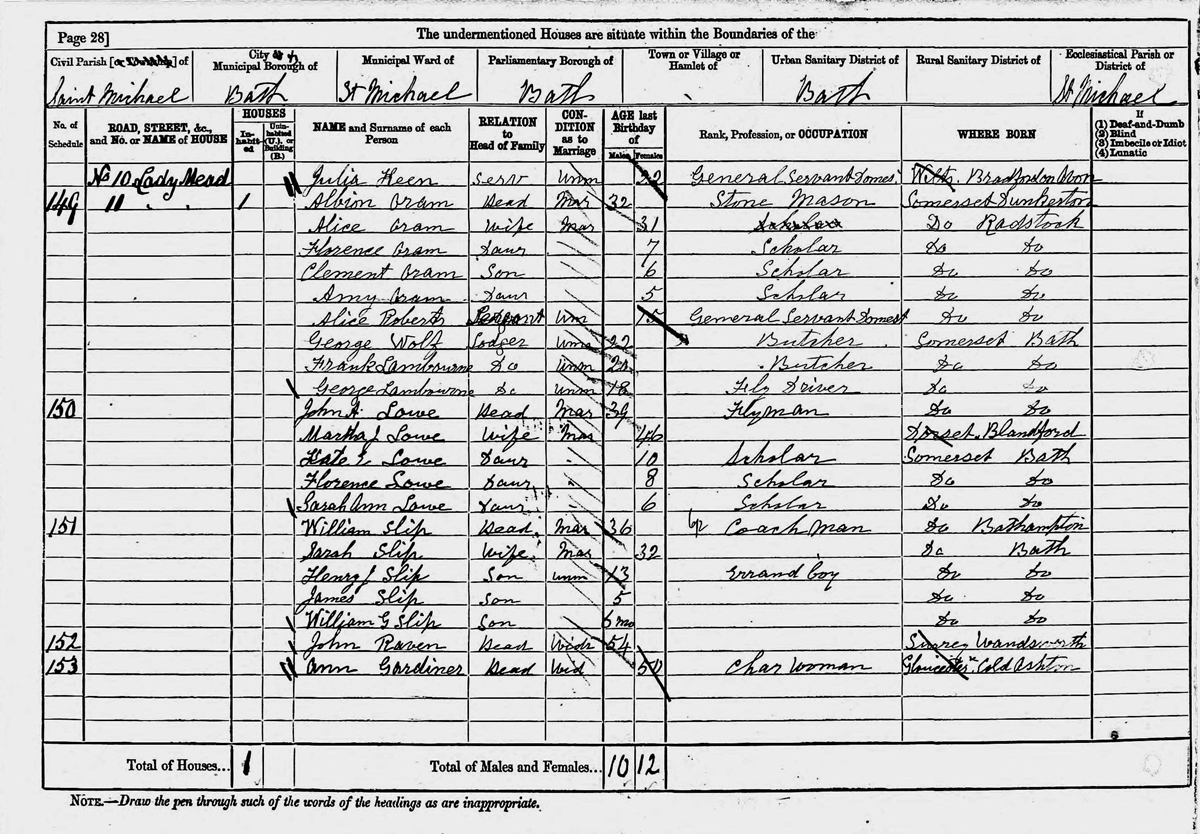 Page 28] The undermentioned Houses are situate within the Boundaries of the
Civil Parish [or Township] of City or Municipal Borough of Municipal Ward of Parliamentary Borough of Town or Village or Hamlet of Urban Sanitary District of Rural Sanitary District of Ecclesiastical Parish or District of
Saint Michael Bath St Michael Bath Bath St Michael
No. of Schedule ROAD, STREET, &c., and No. or NAME of HOUSE HOUSES Inhabited Uninhabited (U.), or Building (B.) NAME and Surname of each Person RELATION to Head of Family CONDITION as to Marriage AGE last Birthday of Males Females Rank, Profession, or OCCUPATION WHERE BORN If (1) Deaf-and-Dumb (2) Blind (3) Imbecile or Idiot (4) Lunatic
No 10 Lady Mead Julia Keen Serv Unm 22 General Servant Domes. Wilts. Bradford on Avon
149 11 " " 1 Albion Oram Head Mar 32 Stone Mason Somerset Dunkerton
Alice Oram Wife Mar 31 Scholar Do Radstock
Florence Oram Daur 7 Scholar Do Do
Clement Oram Son 6 Scholar Do Do
Amy Oram Daur 5 Scholar Do Do
Alice Roberts Servant Um 15 General Servant Domest Do Do
George Wolf Lodger Unm 22 Butcher Somerset Bath
Frank Lambourne Do Unm 20 Butcher Do Do
George Lambourne Do Unm 18 Fly Driver Do Do
150 John A. Lowe Head Mar 39 Flyman Do Do
Martha J Lowe Wife Mar 46 Dorset. Blandford
Kate E Lowe Daur 10 Scholar Somerset Bath
Florence Lowe Daur 8 Scholar Do Do
Sarah Ann Lowe Daur 6 Scholar Do Do
151 William Slip Head Mar 36 Coach Man Do Bathampton
Sarah Slip Wife Mar 32 Do Bath
Henry J Slip Son Unm 13 Errand boy Do Do
James Slip Son 5 Do Do
William G Slip Son 6 mo Do Do
152 John Raven Head Widr 54 Surrey Wandsworth
153 Ann Gardiner Head Wid 50 Char Woman Cold Ashton
Total of Houses... 1 Total of Males and Females... 10 12
NOTE.—Draw the pen through such of the words of the headings as are inappropriate.